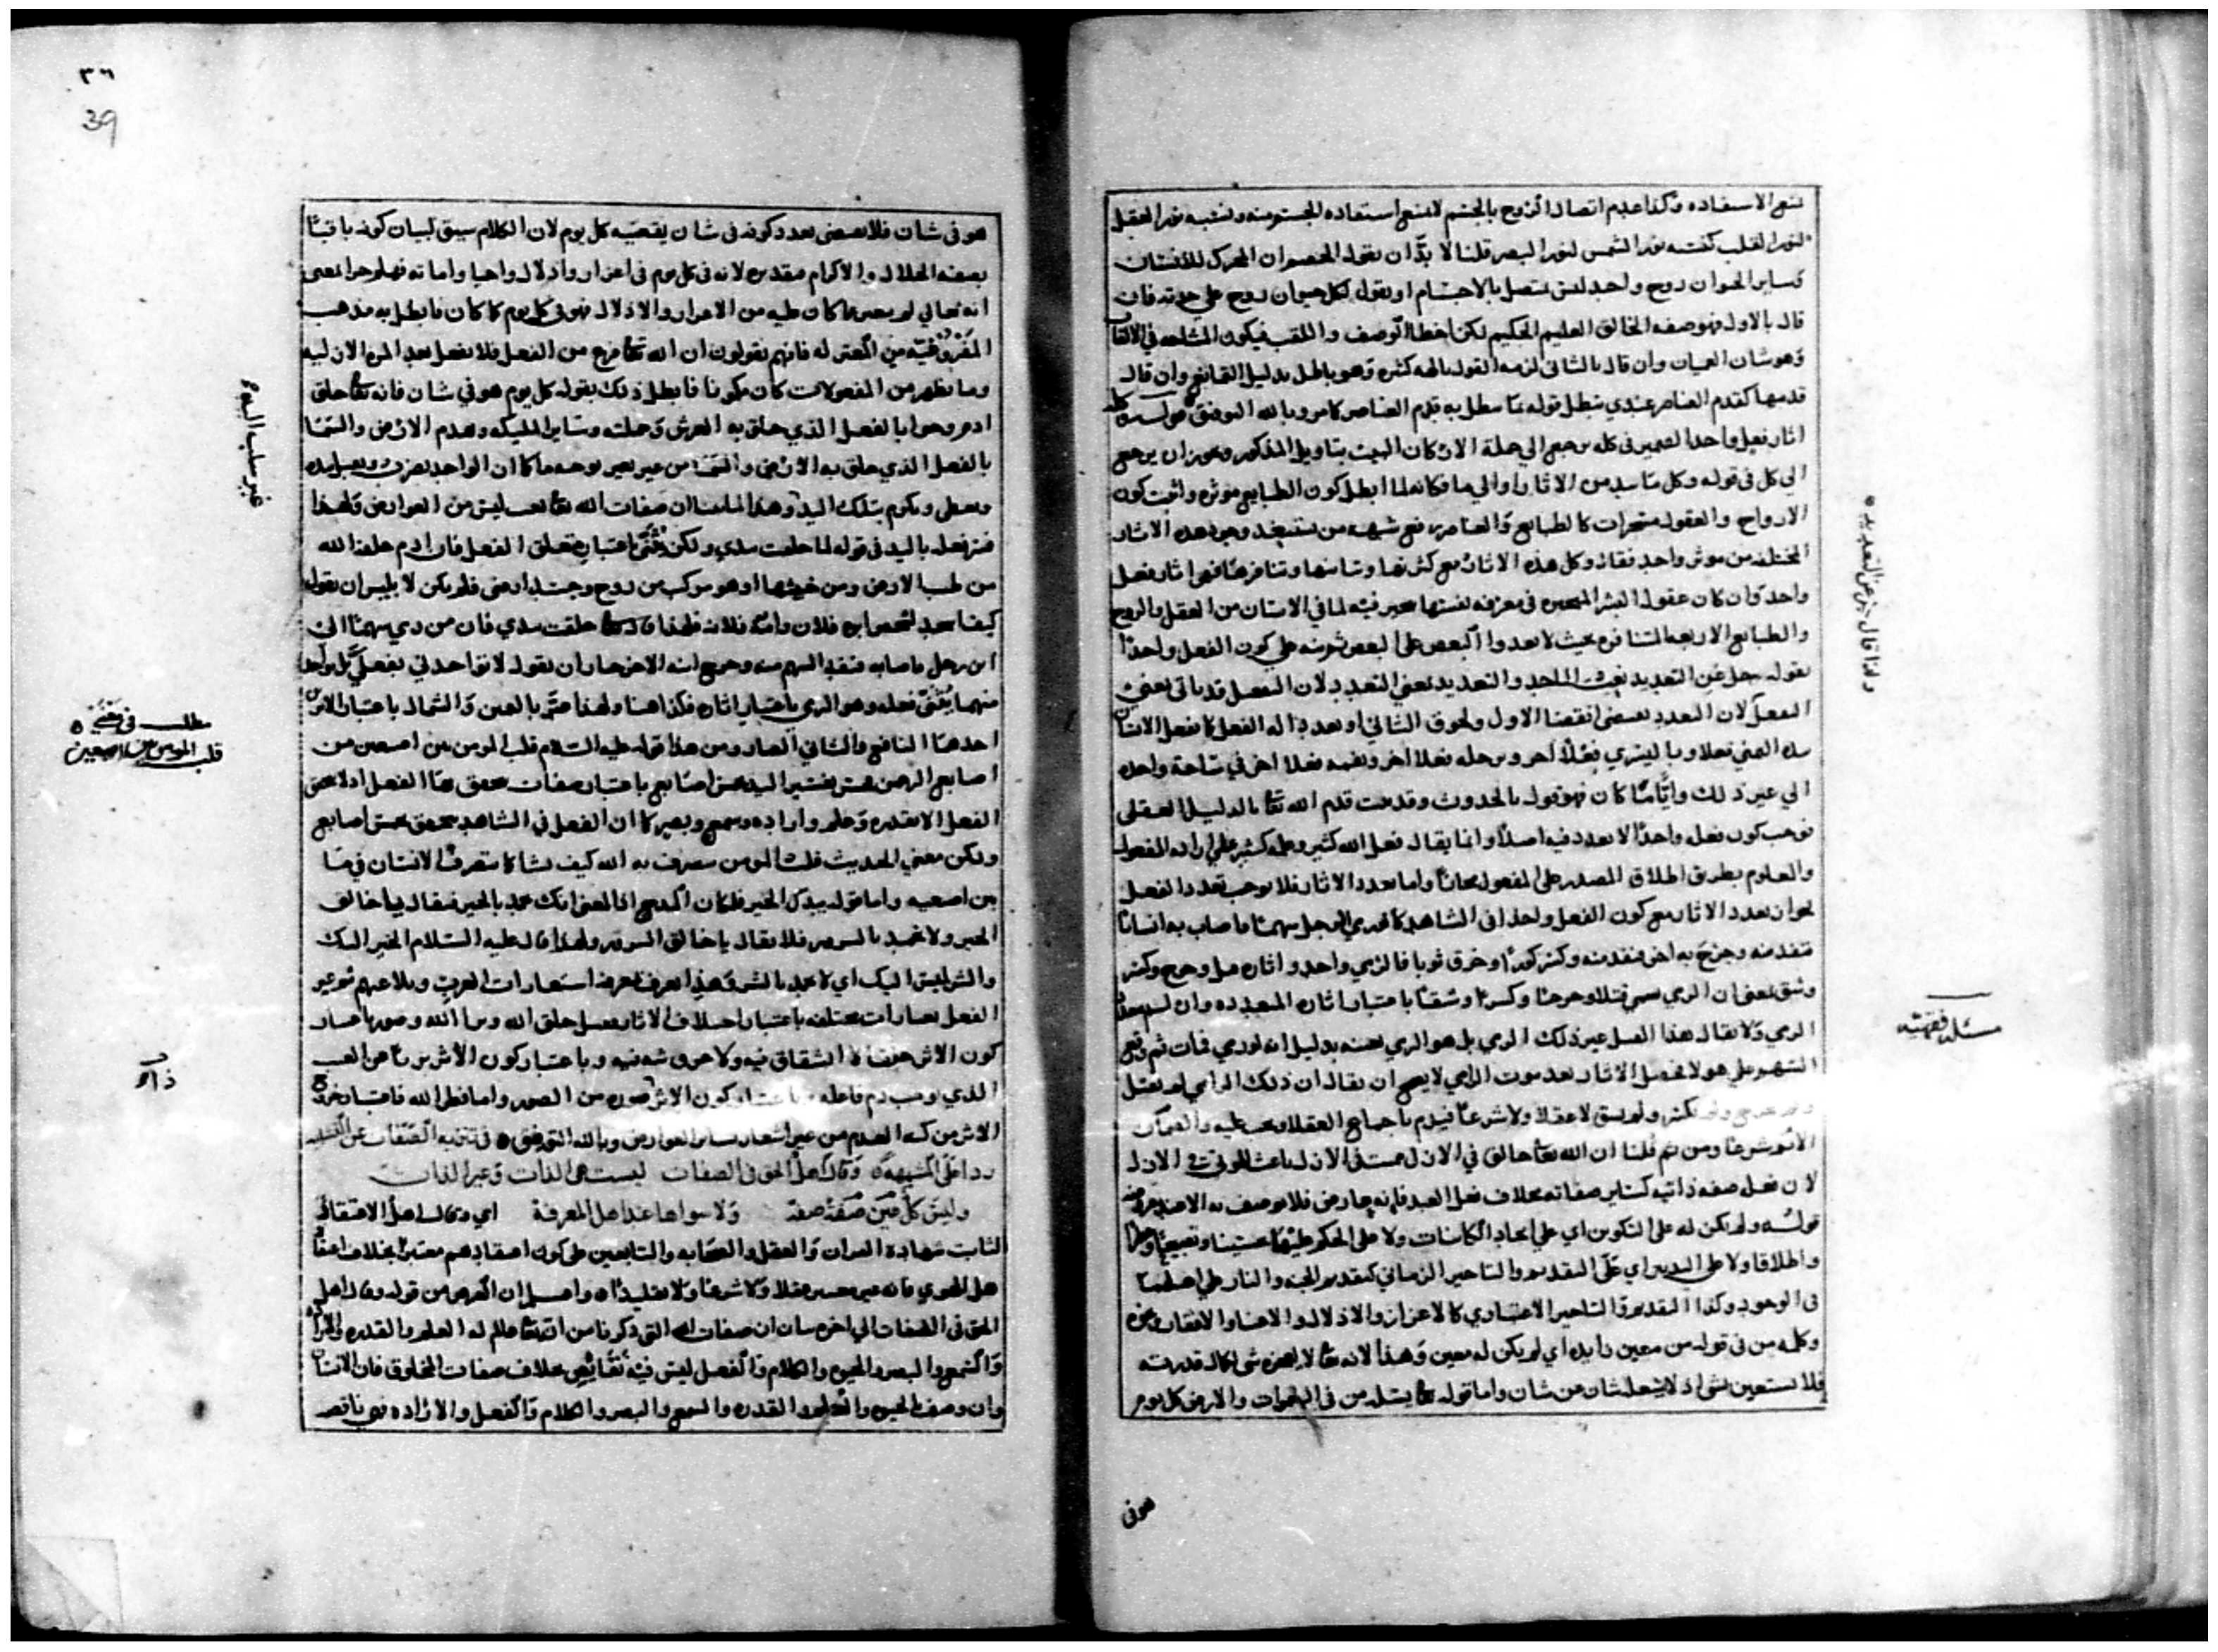 الاستفاده وكذا عدم اتصال الروح بالجسم لا يمنع استفاده الجسم منه ونسبه نور العقل
لنور القلب كنسبه نور الشمس لنور البصر قلنا لا بدّ ان يقول الخصم ان المحرك للانسان
وساير الحيوان روح واحد ليس متصل بالاجسام او يقول لكل حيوان روح على حدته فان
قال بالاول فهو وصفه الخالق العليم الحكيم لكن اخطا الوصف واللقب فيكون المشاحه في الالقاب
وهو شان العميان وان قال بالثاني لزمه القول بالهه كثيره وهو باطل بدليل التمانع وان قال
قدمها كقدم العناصر عندي يبطل قوله بما يبطل به قدم العناصر كما مر وبالله التوفيق قوله
اثار فعل واحد الضمير في كله يرجع الي جملة الاركان البيت بتاويل المذكور ويجوز ان يرجع
الي كل في قوله وكل من الاثار او الي ما فكانه لما ابطل كون الطبايع موثره واثبت كون
الارواح والعقول مسخرات كالطبايع والعناصر رفع شبهه من يستبعد وجود هذه الاثار
المختلفه من موثر واحد فقال وكل هذه الاثار مع كثرتها وتباينها وتنافرها فهو اثار فعل
واحد وان كان عقول البشر المتحيره في معرفه نفسها تتحير فيه لما في الانسان من العقل والروح
والطبايع الاربعه المتنافره بحيث لا يعدوا البعض على البعض ثم نبه على كون الفعل واحدا
بقوله جل عن التعديد نعت الملحد والتعديد يعني التعدد لان التفعيل قد ياتي بمعني
الفعل لان التعدد يقتضي انقضا الاول ولحوق الثاني او تعدد اله الفعل كما يفعل الانسان
بيده اليمني فعلا وباليسري فعلا اخر وبرجله فعلا اخر وبفمه فعلا اخر في ساعة واحده
الي غير ذلك وايّاما كان فهو قول بالحدوث وقد ثبت قدم الله تعا بالدليل العقلي
فوجب كون فعله واحدا لا تعدد فيه اصلا وانما يقال فعل الله كثير وعلمه كثير على اراده المفعول
والمعلوم بطريق اطلاق المصدر على المفعول مجازا واما تعدد الاثار فلا يوجب تعدد الفعل
لجواز تعدد الاثار مع كون الفعل واحدا في الشاهد كما يرمي الرجل سهما فاصاب به انسانا
فنفد منه وجرح به اخر فنفد منه وكسر كوزا وخرق ثوبا فالرمي واحد واثاره قتل وجرح وكسر
وشق بمعني ان الرمي يسمي قتلا وجرحا وكسرا وشقا باعتبار اثاره المتعدده وان لم يتعدد
الرمي ولا يقال هذا القتل غير ذلك الرمي بل هو الرمي بعينه بدليل انه لو رمي فمات ثم وقع
السهم على هولا فحصل الاثار بعد موت الرامي لا يصح ان يقال ان ذلك الرامي لم يقتل
ولم يجرح ولم يكسر ولم يشق لا عقلا ولا شرعا فيذم باجماع العقلا ويجب عليه والضمان
الاثم شرعا ومن ثم قلنا ان الله تعا خالق في الازل محيي في الازل باعث الموتي في الازل
لان فعله صفه ذاتيه كساير صفاته بخلاف فعل العبد فانه عارض فلا يوصف به الا عند
قوله ولم يكن له على التكوين اي على ايجاد الكاينات ولا على الحكم عليها تحسينا وتقبيحا
واطلاقا ولا على التدبير اي على التقديم والتاخير الزماني كتقديم الجنه والنار على اهلهما
في الوجود وكذا التقديم والتاخير الاعتباري كالاعزاز والاذلال والاغنا والافقار وغيره
وكلمه من في قوله من معين زايده اي لم يكن له معين وهذا لانه تعا لا يعجزه شي لكمال قدرته
فلا يستعين بشي اذ لا يشغله شان عن شان واما قوله تعا يسئله من في السموات والارض كل يوم
هو في
ولذا قال جل عن التعديد
مسئله فقهيه
٣٦
39
هو في شان فلا يقتضي تعدد كونه في شان بقضيه كل يوم لان الكلام سبق لبيان كونه باقيا
بصفه الجلال والاكرام مقدس لانه في كل يوم في اعزاز واذلال واحيا واماته فهلم جرا لمعني
انه تعالي لم يتغير عما كان عليه من الاعزاز والاذلال فهو في كل يوم كما كان فابطل به مذهب
المفروغيّه من المعتزله فانهم يقولون ان الله تعا فرغ من الفعل فلا يفعل بعد المره الاوليه
وما يظهر من المفعولات كان مكونا فابطل ذلك بقوله كل يوم هو في شان فانه تعا خلق
ادم وحوا بالفعل الذي خلق به العرش وحملته وساير المليكه وهدم الارض والسما
بالفعل الذي خلق به الارض والسما من غير تغير بوجه ما كما ان الواحد يضرب
ويعطي ويكرم بتلك اليد وهذا لما بينا ان صفات الله تعا ليس من العوارض ولهذا
فسر فعله باليد في قوله لما خلقت بيدي ولكن ثُنّي باعتبار متعلق الفعل فان ادم خلقه الله
من طيب الارض ومن خبيثها او هو مركب من روح وجسد ارضي فلم يكن لابليس ان يقول
كيف اسجد لشخص ابوه فلان وامه فلانه فلهذا قال تعا خلقت بيدي فان من رمي سهما الي
ابن رجل فاصابه فنفد السهم منه وجرح ابنه الاخر جاز ان يقول لانه احد في بفعل كل واحد
منهما يُثَنّي فعله وهو الرمي باعتبار اثاره فكذا هنا ولهذا عبّر باليمين والشمال باعتبار الاثر
احدهما النافع والثاني الضار ومن هذا قوله عليه السلام قلب المومن بين اصبعين من
اصابع الرحمن حيث تفسير اليد بخمس اصابع باعتبار صفات يتحقق بها الفعل اذ لا يتحقق
الفعل الا بقدره وعلم واراده وسمع وبصر كما ان الفعل في الشاهد يتحقق بخمس اصابع
ولكن معني الحديث قلب المومن يتصرف به الله كيف يشا كما يتصرف الانسان في ما
بين اصبعيه واما قوله بيدك الخير فلمكان المدح اذ المعني انك تحمد بالخير فيقال يا خالق
الخير ولا تحمد بالشر فلا يقال يا خالق الشر ولهذا قال عليه السلام الخير اليك
والشر ليس اليك اي لا تحمد بالشر وهذا يعرف بمعرفه استعارات العرب وبلاغتهم ثم عبر
الفعل بعبارات مختلفه باعتبار اختلاف الاثار فقيل خلق الله وبرا الله وصور باعتبار
كون الاثر خلقا لا انشقاق فيه ولا خرق ثم فيه وباعتبار كون الاثر بريا عن العيب
الذي اوجب ذم فاعله وباعتبار كون الاثر صوره من الصور واما فطر الله فاعتبار خروج
الاثر من كنه العدم من غير اشعار بساير العوارض وبالله التوفيق ه في تنزيه الصفات عن التشبيه
ردا على المشبهه ه وقال اهل الحق في الصفات ليست هي الذات وغير الذات
وليس كل عين صفة صفة ولا سواها عند اهل المعرفة اي وقال اهل الاعتقاد
الثابت بشهادة القران والعقل والصحابه والتابعين على كون اعتقادهم معتبرا بخلاف اعتقاد
اهل الهوي فانه غير معتبر عقلا ولا شرعا ولا تقليدا ه واعلم ان الغرض من قوله وقال اهل
الحق في الصفات الي اخره بيان ان صفات الله التي ذكرنا من انه تعا عالم له العلم والقدره والاراده
والسمع والبصر والحيوة والكلام والفعل ليس فيه نقايص بخلاف صفات المخلوق فان الانسان
وان وصف بالحيوة والعلم والقدره والسمع والبصر والكلام والفعل والاراده فهي ناقصه
مطلب في معني
قلب المومن بين اصبعين